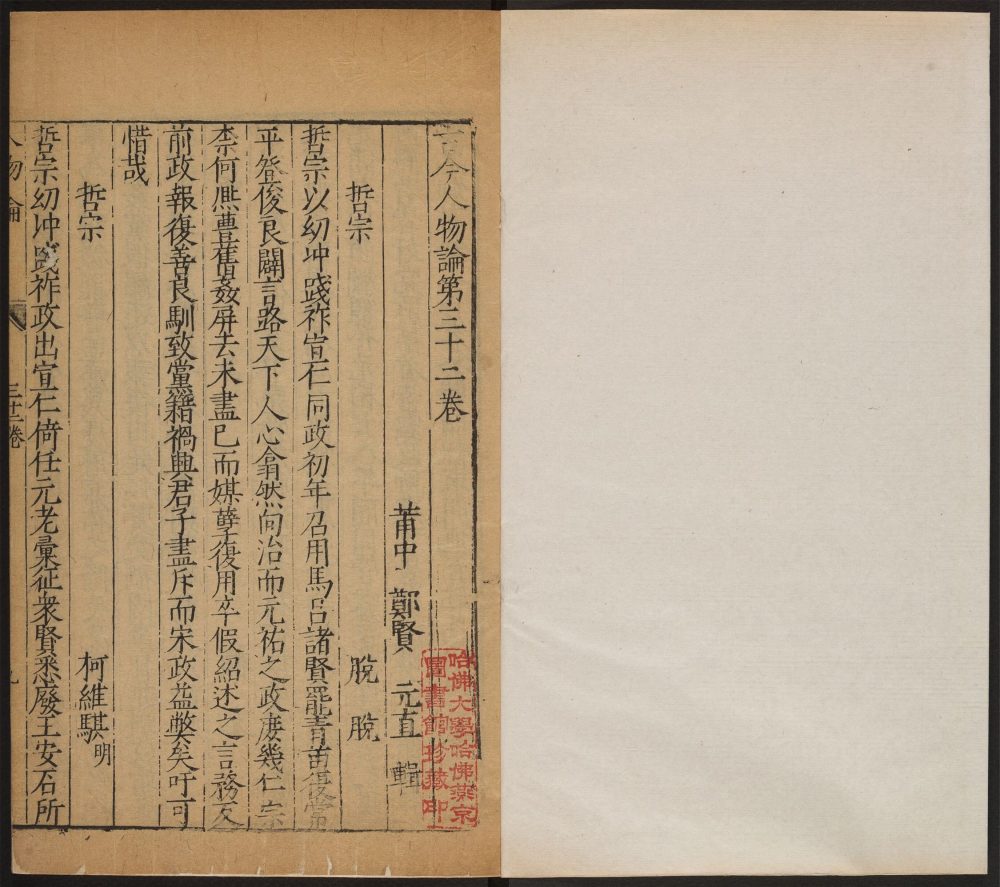 古今人物論第三十二卷
莆中 鄭賢 元直 輯
哲宗 脫 脫
哲宗以幼冲踐祚宣仁同政初年召用馬呂諸賢罷青苗復常
平登俊良闢言路天下人心翕然向治而元祐之政庶幾仁宗
柰何熈豊舊姦屏去未盡已而媒孽復用卒假紹述之言務反
前政報復善良馴致黨籍禍興君子盡斥而宋政益獘矣吁可
惜哉
哲宗 柯維騏明
哲宗幼冲踐祚政出宣仁倚任元老彙征衆賢悉廢王安石所
人物論 三十二卷
哈佛大學哈佛燕京
圖書館珍藏印